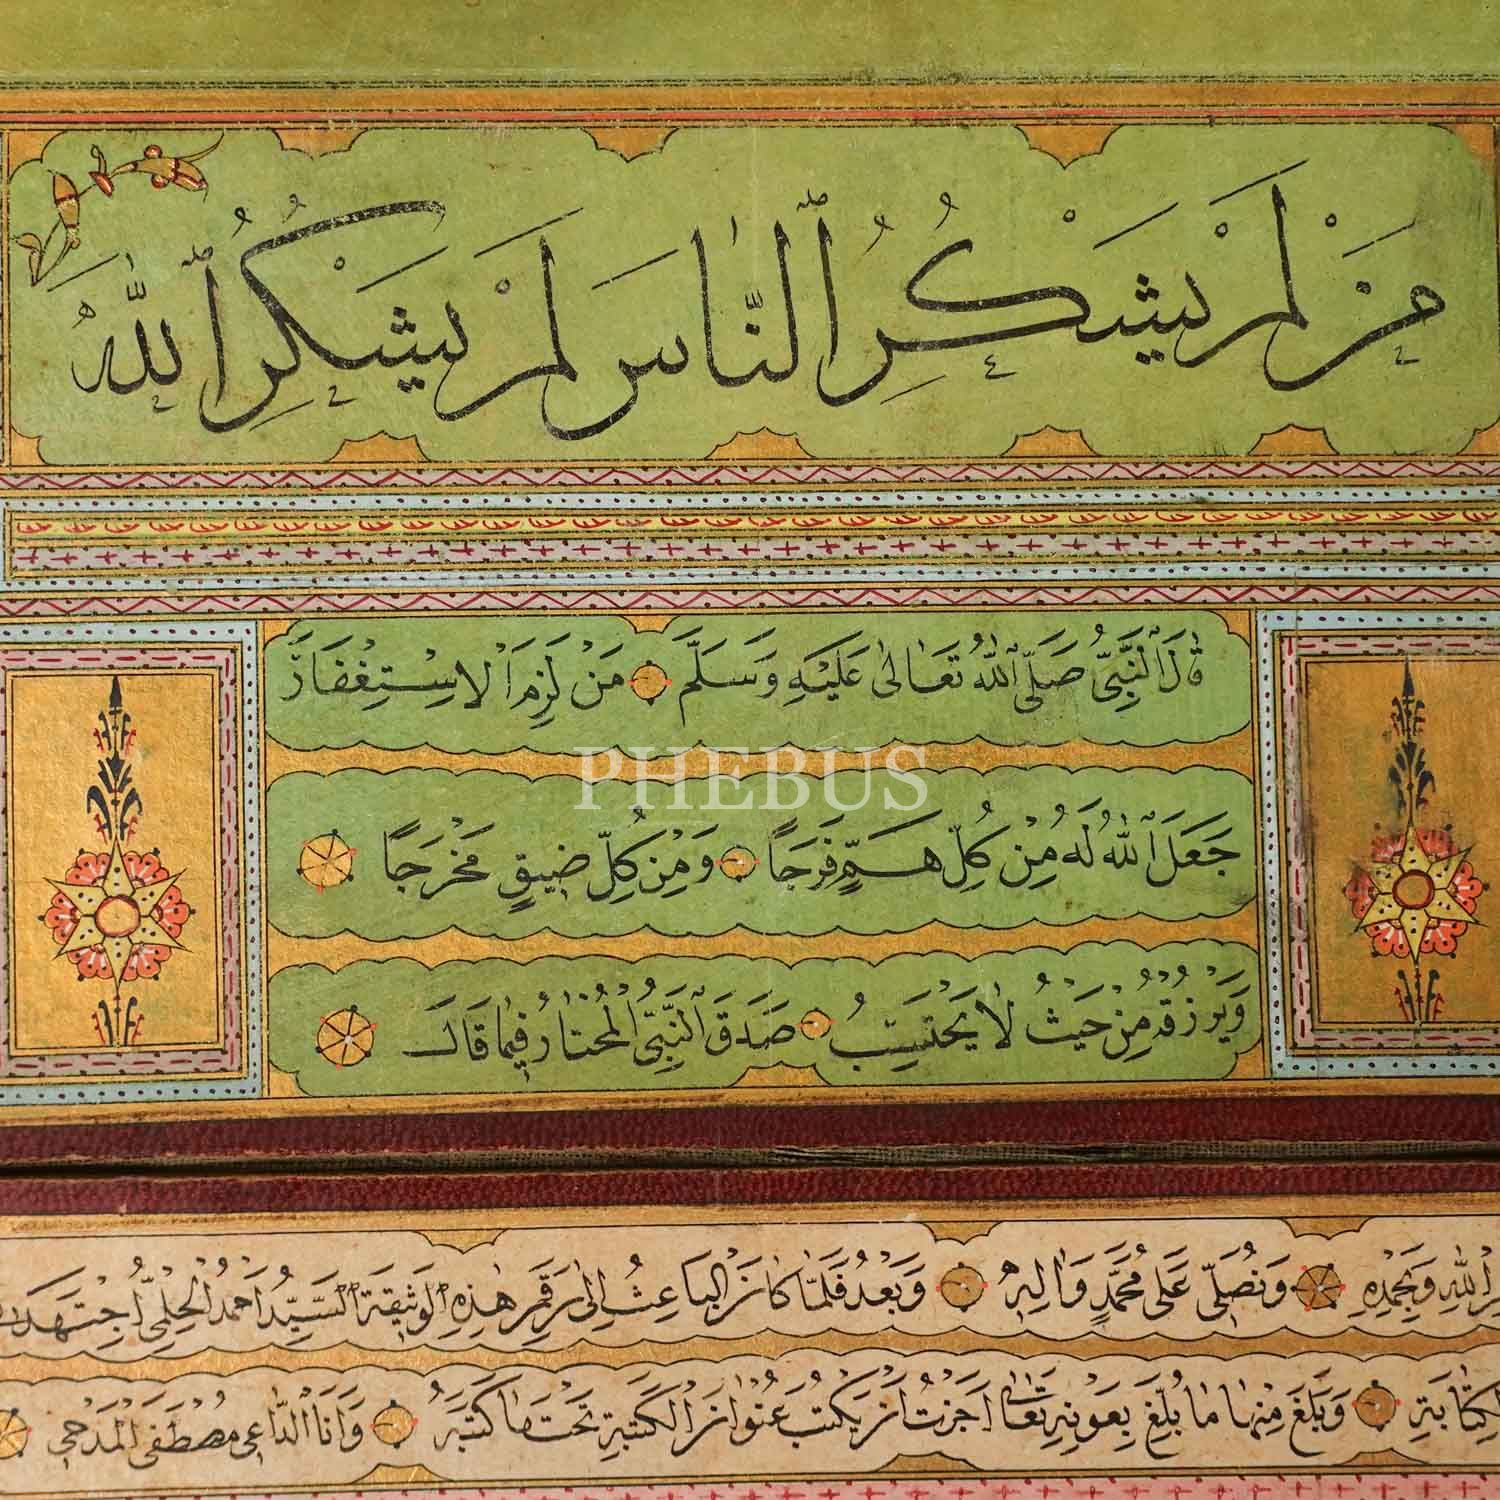 مَنْ لَمْ يَشْكُرِ ٱلنَّاسَ لَمْ يَشْكُرِ ٱللهَ
قَالَ ٱلنَّبِيُّ صَلَّى ٱللهُ تَعَالٰى عَلَيْهِ وَسَلَّمَ مَنْ لَزِمَ الْاِسْتِغْفَارَ
PHEBUS
جَعَلَ ٱللهُ لَهُ مِنْ كُلِّ هَمٍّ فَرَجًا وَمِنْ كُلِّ ضِيقٍ مَخْرَجًا
وَيَرْزُقْهُ مِنْ حَيْثُ لَا يَحْتَسِبُ صَدَقَ ٱلنَّبِيُّ الْمُخْتَارُ فِيمَا قَالَ
اللهِ وَبِحَمْدِهِ وَنُصَلِّي عَلٰى مُحَمَّدٍ وَاٰلِهِ وَبَعْدُ فَلَمَّا كَانَ الْبَاعِثُ اِلٰى رَقْمِ هٰذِهِ ٱلْوَثِيقَةِ ٱلسَّيِّدُ اَحْمَدُ الْحِلْمِيُّ اجْتَهَدَ
الْكِتَابَةِ وَبَلَغَ مِنْهَا مَا بُلِّغَ بِعَوْنِهِ تَعَالٰى اَجَزْتُ اَنْ يَكْتُبَ عُنْوَانَ الْكَتَبَةِ تَحْتَ مَا كَتَبَهُ وَاَنَا الدَّاعِي مُصْطَفَى